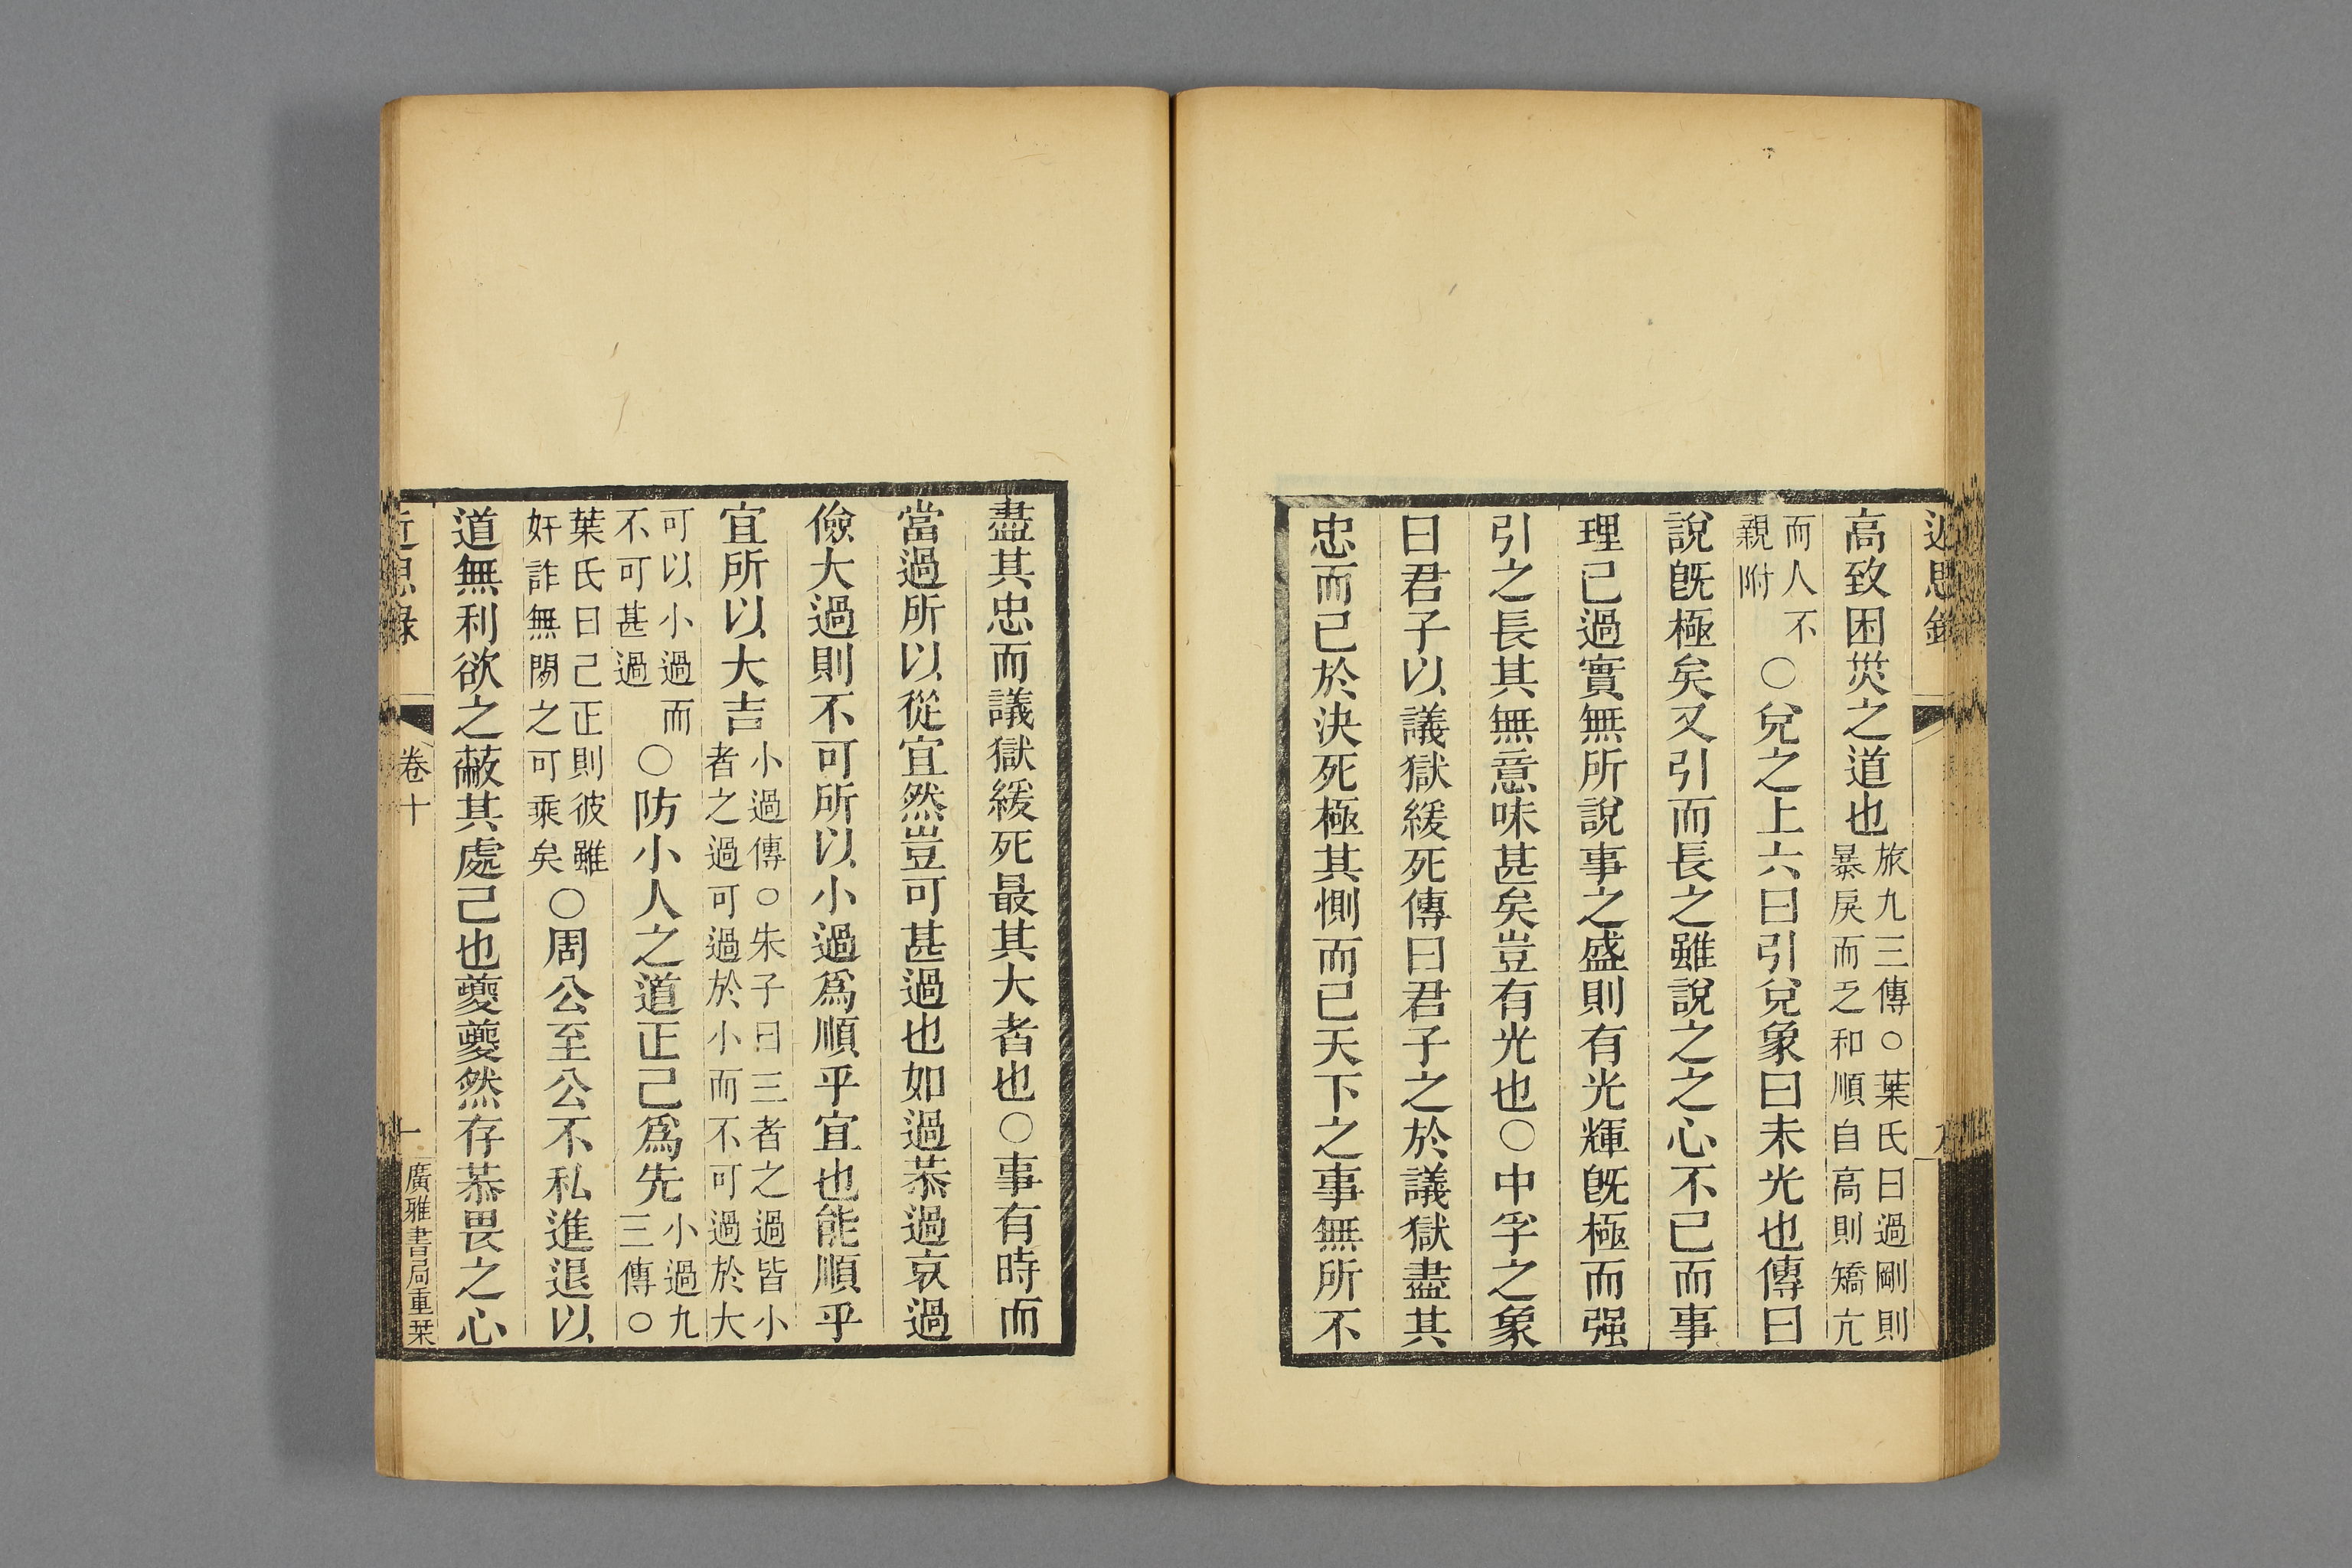 近思錄
高致困災之道也旅九三傳○葉氏曰過剛則暴戾而乏和順自高則矯亢
而人不親附○兌之上六曰引兌象曰未光也傳曰
說旣極矣又引而長之雖說之之心不已而事
理已過實無所說事之盛則有光輝旣極而强
引之長其無意味甚矣豈有光也○中孚之象
曰君子以議獄緩死傳曰君子之於議獄盡其
忠而已於決死極其惻而已天下之事無所不
盡其忠而議獄緩死最其大者也○事有時而
當過所以從宜然豈可甚過也如過恭過哀過
儉大過則不可所以小過爲順乎宜也能順乎
宜所以大吉小過傳○朱子曰三者之過皆小者之過可過於小而不可過於大
可以小過而不可甚過○防小人之道正己爲先小過九三傳○
葉氏曰己正則彼雖奸詐無閒之可乘矣○周公至公不私進退以
道無利欲之蔽其處己也夔夔然存恭畏之心
近思錄 卷十 廣雅書局重栞